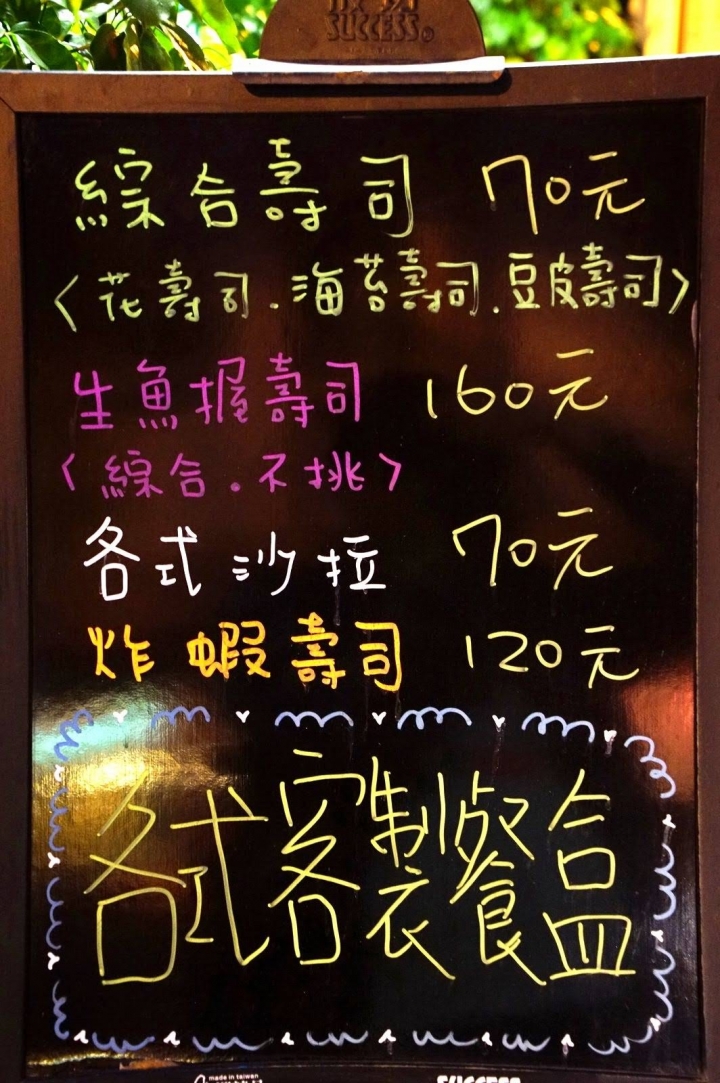 SUCCESS
綜合壽司 70元
〈花壽司.海苔壽司.豆皮壽司〉
生魚握壽司 160元
〈綜合.不挑〉
各式沙拉 70元
炸蝦壽司 120元
各式客製餐盒
made in taiwan
SUCCESS